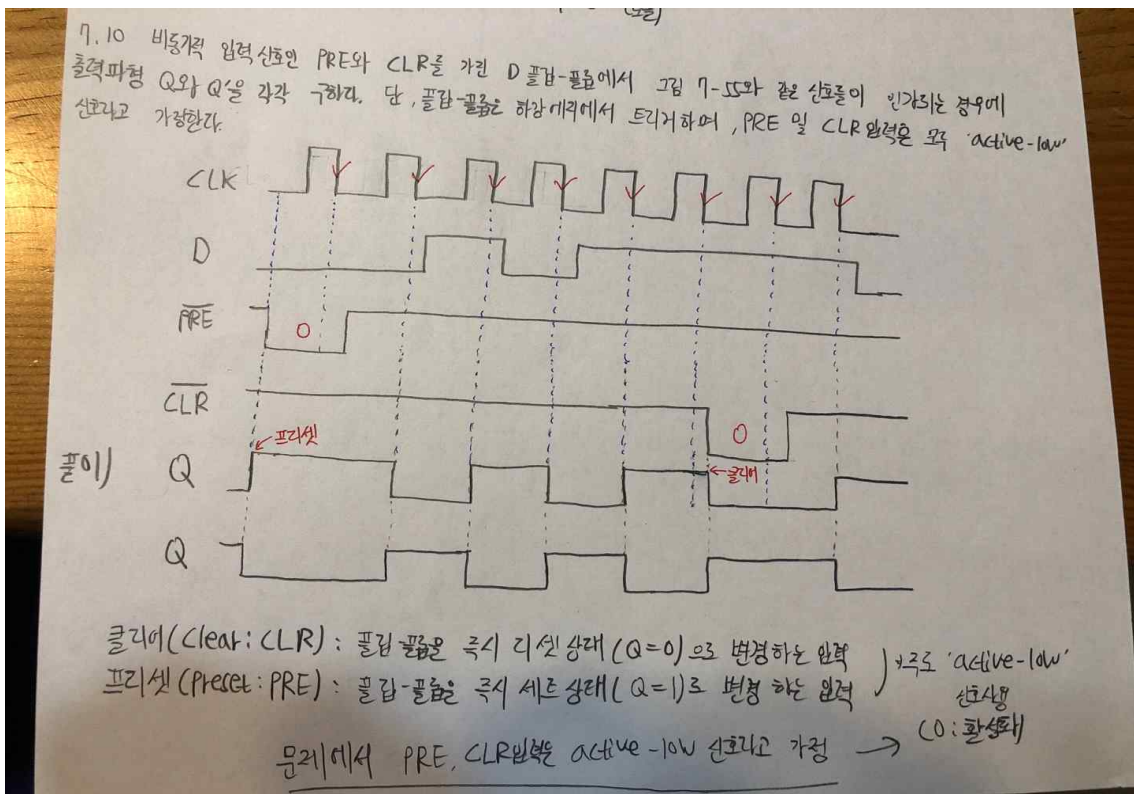 7.10 비동기적 입력 신호인 PRE와 CLR를 가진 D 플립-플롭에서 그림 7-55와 같은 신호들이 인가되는 경우에
출력파형 Q와 Q'을 각각 구하라. 단, 플립-플롭은 하강에지에서 트리거하며, PRE 및 CLR입력은 모두 'active-low'
신호라고 가정한다.
CLK
D
PRE
0
CLR
0
←프리셋
←클리어
풀이)
Q
Q
클리어(Clear: CLR) : 플립-플롭을 즉시 리셋상태(Q=0)으로 변경하는 입력
프리셋(Preset: PRE) : 플립-플롭을 즉시 세트상태(Q=1)로 변경하는 입력
주로 'active-low'
신호사용
(0:활성화)
문제에서 PRE, CLR입력은 active-low 신호라고 가정 →